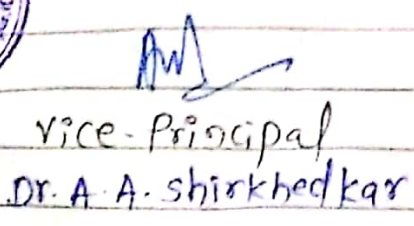 Vice-Principal
Dr. A. A. Shirkhedkar